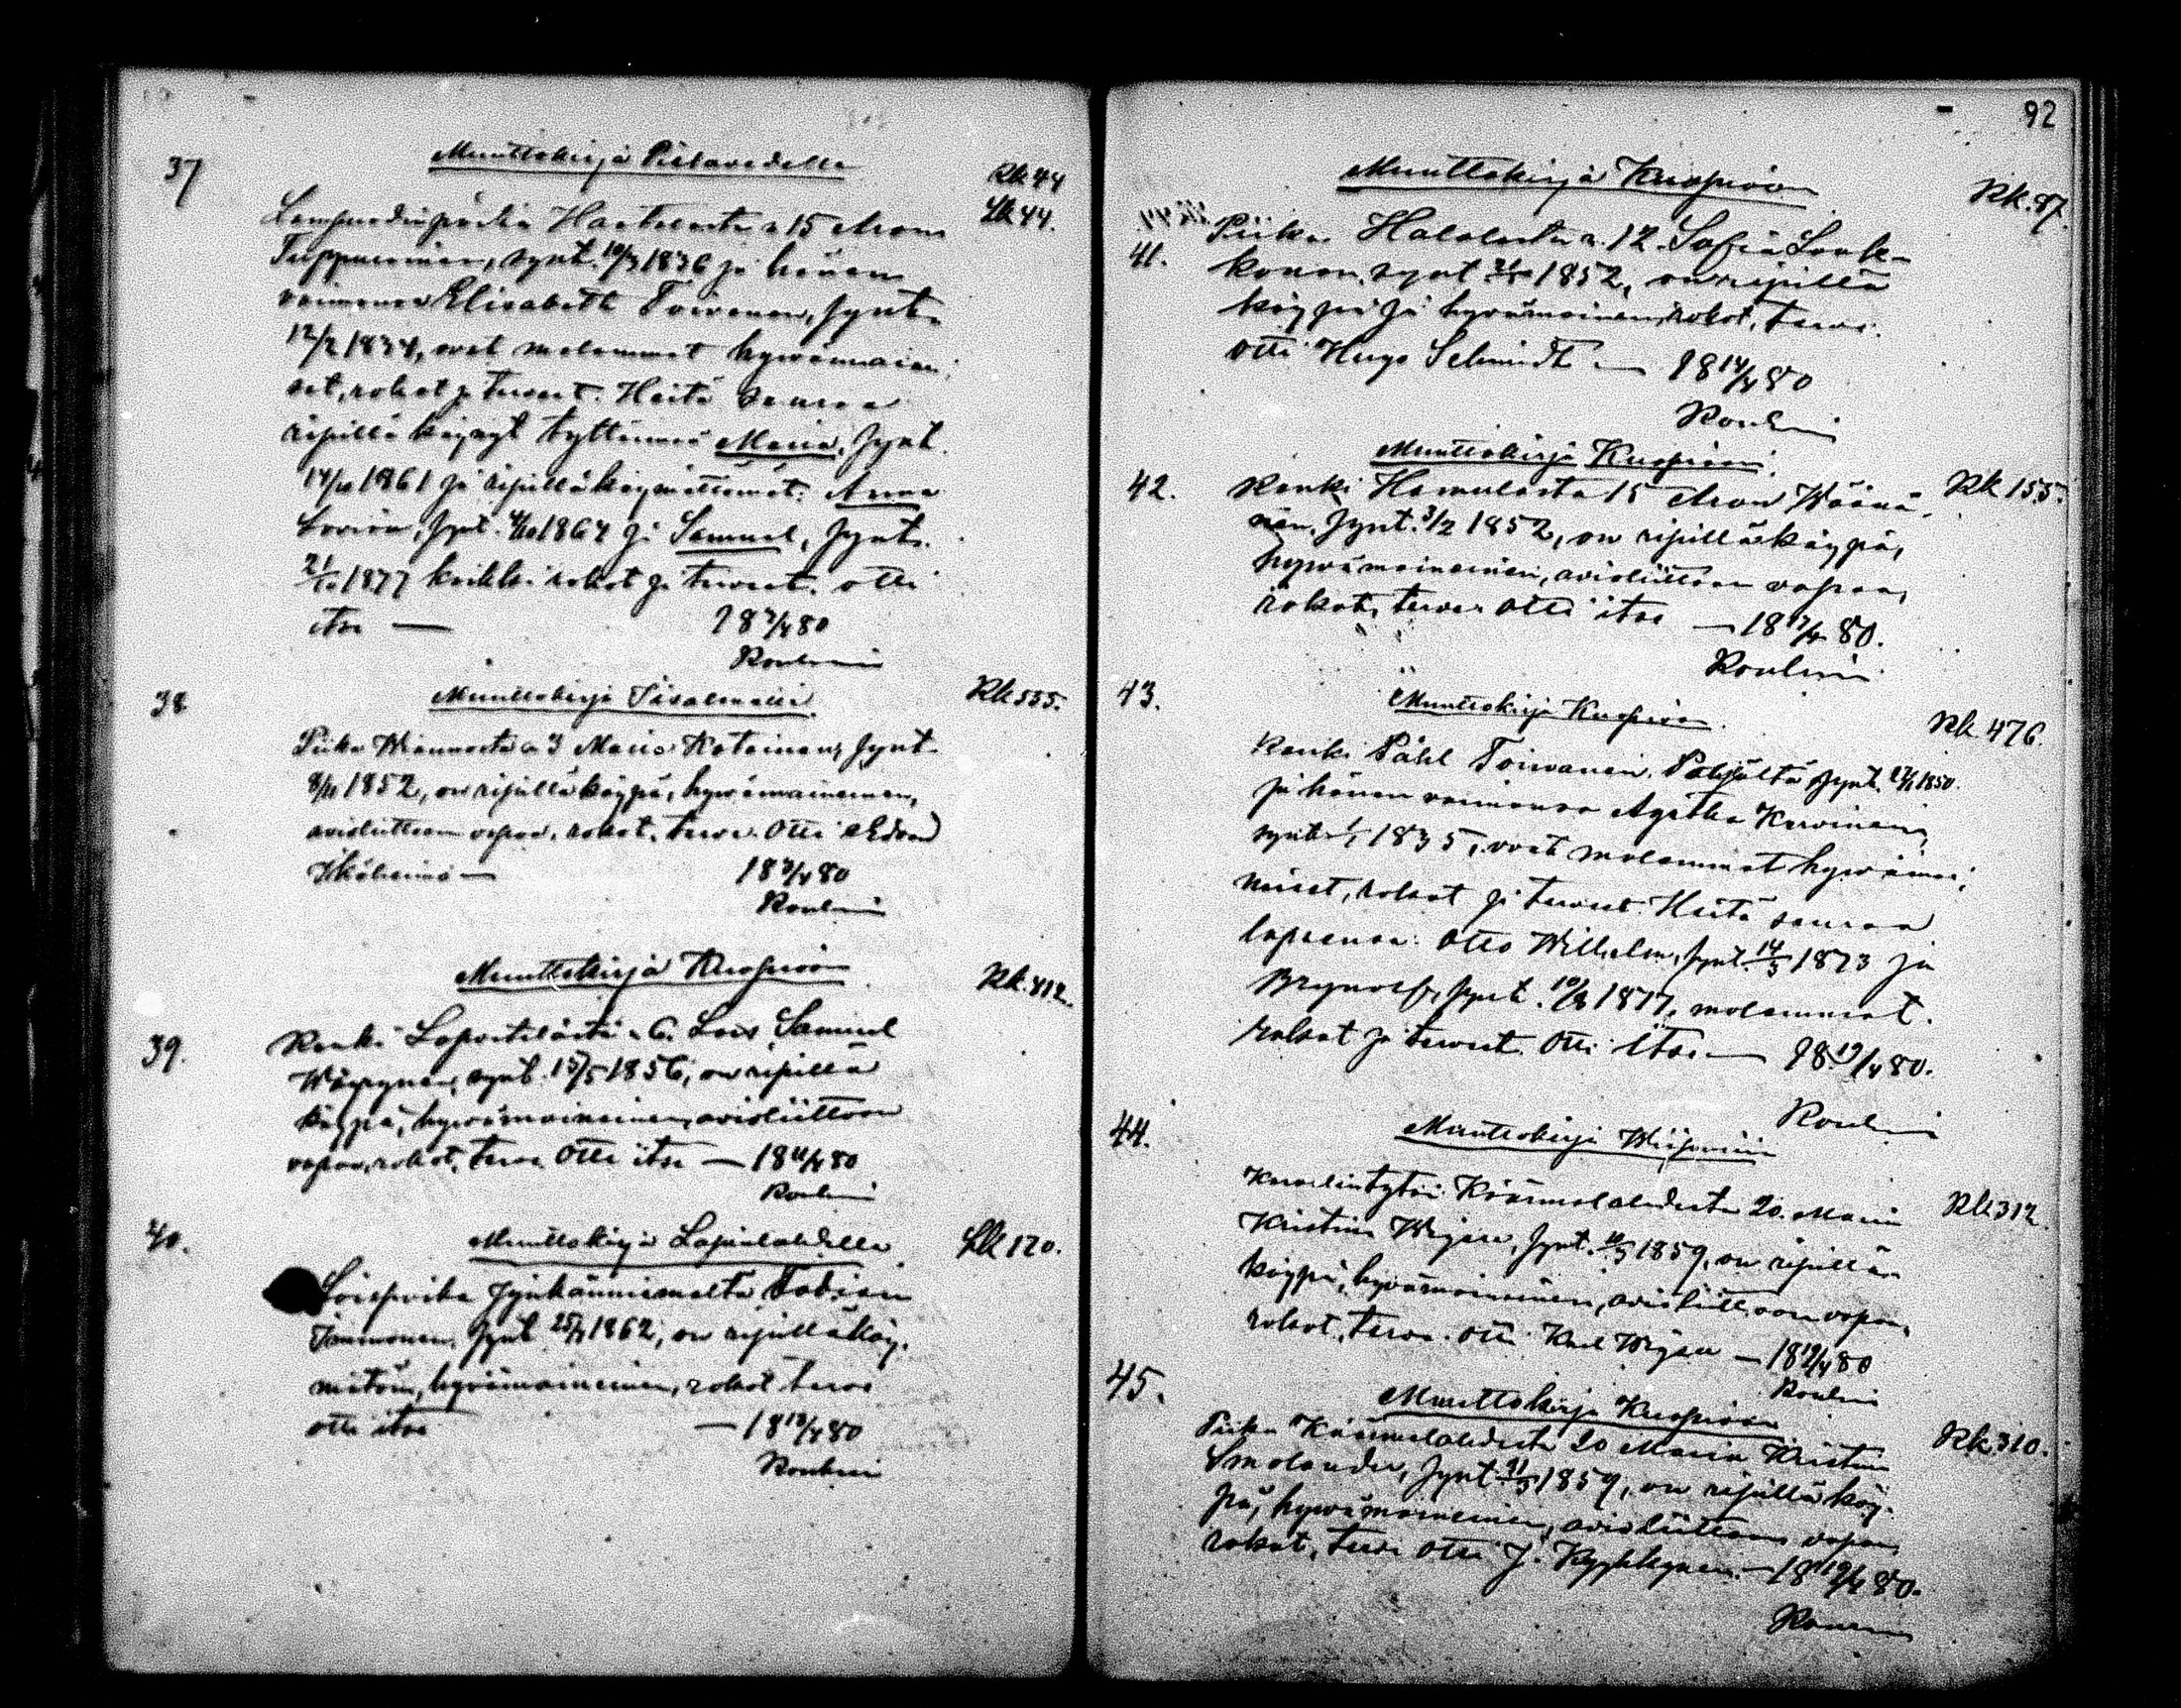 37
Muuttokirja Pielavedelle
Rk 44
Lk 44.
Lampuodinpoika Haatalasta n 15 Aron
Tuppurainen, synt. 10/3 1836 ja hänen
vaimonsa Elisabeth Toivanen, synt.
12/2 1834, ovat molemmat hywänmainei-
set, rokot ja terveet. Heitä seuraa
ripillä käynyt tyttärensä Maria, synt.
14/10 1861 ja ripillä käymättömät: Anna
Loviisa, synt. 4/10 1864 ja Samuel, synt.
21/10 1877 kaikki rokot ja terveet. otti
itse — 18 7/4 80
Roulemi
38
Muuttokirja Iisalmeen
Rk 555.
Piika Wiannasta n 3 Maria Katainen, synt
8/11 1852, on ripillä käypä, hywänmaineinen,
avioliittoon vapaa, rokot. terve. Otti Edvard
Ikäheimo — 18 9/4 80
Roulemi
Muuttokirja Kuopioon
Rk. 412.
39.
Renki Lapvetelästä n 6. Lars Samuel
Wäyrynen, synt. 15/5 1856, on ripillä
käypä, hywänmaineinen, avioliittoon
vapaa, rokot, terve. Otti itse — 18 11/4 80
Roulemi
40.
Muuttokirja Lapinlahdelle
Lk 120.
Loispoika Jynkänniemeltä Tobias
Immonen, synt 25/7 1862, on ripilläkäy-
mätön, hyvänmaineinen, rokot terve
otti itse — 18 13/4 80
Roulemi
92
Muuttokirja Kuopioon
Rk. 87.
41.
Piika Halolasta n. 12. Sofia Louk-
konen, synt 21/5 1852, on ripillä
käypä ja hyvämaineinen, rokot, terve.
Otti Hugo Schmidt — 18 14/4 80
Roulemi
Muuttokirja Kuopioon.
42.
Rk 155.
Renki Hamulasta 15 Aron Wäänä-
nen, synt. 3/2 1852, on ripilläkäypä,
hywämaineinen, avioliittoon vapaa,
rokot, terve. Otti itse — 18 17/4 80.
Roulemi
43.
Muuttokirja Kuopioon.
Rk 476.
Renki Påhl Toiwanen. Pohjolta synt. 27/1 1850.
ja hänen vaimonsa Agatha Korvinen,
synt. 1835, ovat molemmat hywämai-
neiset, rokot ja terveet. Heitä seuraa
lapsensa: Otto Wilhelm, synt. 14/3 1873 ja
Brynolf, synt. 10/8 1877, molemmat.
rokot ja terveet. Otti itse — 18 19/4 80.
Roulemi
44.
Muuttokirja Wiipuriin
Rk 312.
Kasvatintyttö Käärmelahdesta 20. Maria
Kristina Weijese, synt. 1859, on ripillä
käypä, hyvämaineinen, avioliittoon vapaa,
rokot, terve. Otti Karl Weijsee — 18 19/4 80
Roulemi
45.
Muuttokirja Kuopioon
Rk 310.
Piika Käärmelahdesta 20 Maria Kristina
Smolander, synt 21/5 1859, on ripillä käy-
pä, hywämaineinen, avioliittoon vapaa,
rokot, terve Otti J. Kyykkynen — 18 19/4 80.
Roulemi